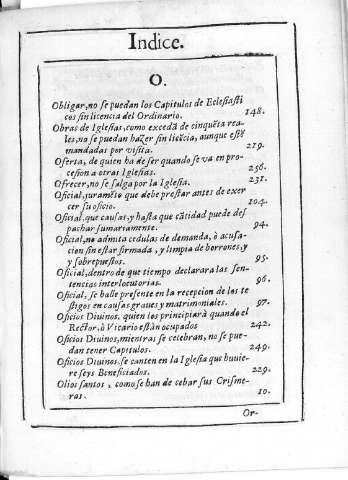 Indice.
O.
Obligar, no se puedan los Capitulos de Eclesiasti
cos sin licencia del Ordinario. 148.
Obras de Iglesias, como excedã de cinquẽta rea-
les, no se puedan hazer sin licẽcia, aunque estẽ
mandadas por visita. 219.
Oferta, de quien ha de ser quando se va en pro-
cesion a otras Iglesias. 256.
Ofrecer, no se salga por la Iglesia. 231.
Oficial, juramẽto que debe prestar antes de exer
cer su oficio. 104.
Oficial, que causas, y hasta que cãtidad puede des
pachar sumariamente. 94.
Oficial, no admita cedulas de demanda, ò acusa-
cion sin estar firmada, y limpia de borrones, y
y sobrepuestos. 95.
Oficial, dentro de que tiempo declarara las sen-
tencias interlocutorias. 96.
Oficial, se halle presente en la recepcion de los te
stigos en causas graues y matrimoniales. 97.
Oficios Diuinos, quien los principiarà quando el
Rector, ò Vicario estàn ocupados 242.
Oficios Diuinos, mientras se celebran, no se pue-
dan tener Capitulos. 249.
Oficios Diuinos, se canten en la Iglesia que huuie-
re seys Beneficiados. 229.
Olios santos, como se han de cebar sus Crisme-
ras. 10.
Or-